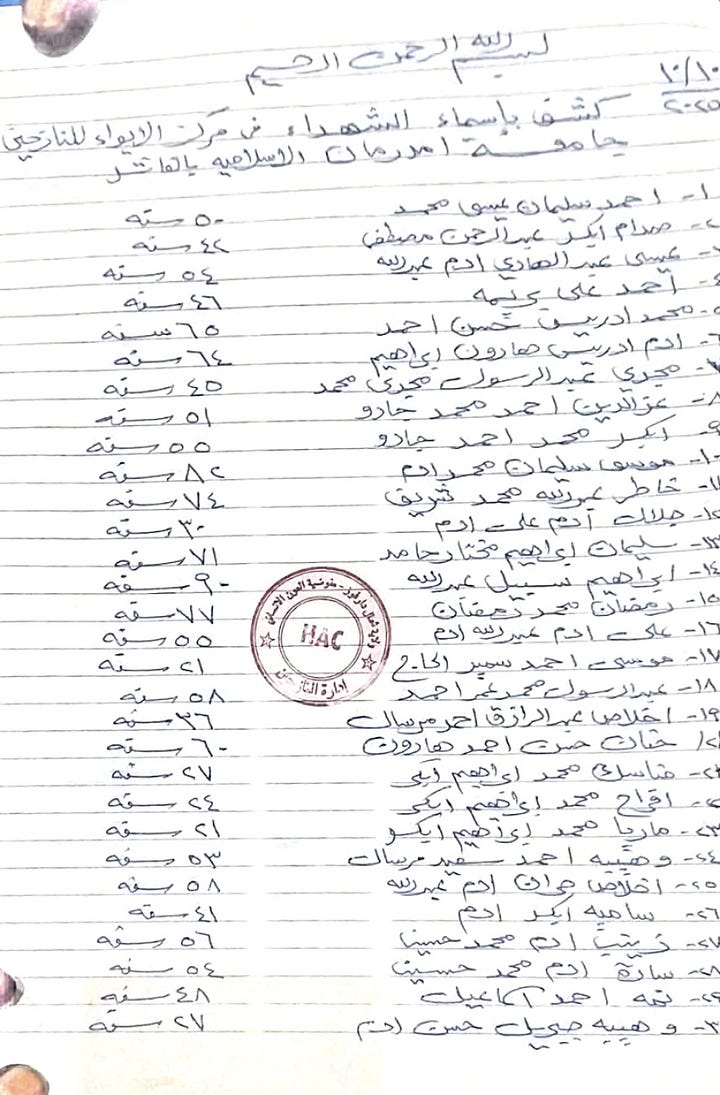 بسم الله الرحمن الرحيم
١٠/١٠
٢٠٢٥
كشف بإسماء الشهداء في مركز الايواء للنازحين
جامعة امدرمان الاسلامية بالفاشر
١- احمد سليمان عيسى محمد ٥٠ سنه
٢- صدام ابكر عبدالرحمن مصطفى ٤٢ سنه
٣- عيسى عبدالهادي ادم عبدالله ٥٤ سنه
٤- أحمد علي ٤٦ سنه
٥- محمد ادريس حسن احمد ٦٥ سنه
٦- ادم ادريس هارون ابراهيم ٦٤ سنه
٧- مجدي عبدالرسول مجدي محمد ٤٥ سنه
٨- عزالدين احمد محمد جادو ٥١ سنه
٩- ابكر محمد احمد جادو ٥٥ سنه
١٠- موسى سليمان محمد ادم ٨٢ سنه
١١- خاطر عبدالله محمد شريف ٧٤ سنه
١٢- جلال آدم علي ادم ٣٠ سنه
١٣- سليمان ابراهيم مختار حامد ٧١ سنه
١٤- ابراهيم سبيل عبدالله ٩٠ سنه
١٥- رمضان محمد رمضان ٧٧ سنه
١٦- علي ادم عبدالله ادم ٥٥ سنه
١٧- موسى احمد سمير الحاج ٢١ سنه
١٨- عبدالرسول محمد عمر احمد ٥٨ سنه
١٩- اخلاص عبدالرازق احمد مرسال ٣٦ سنه
٢٠/ حنان حسن احمد هارون ٦٠ سنه
٢١- مناسك محمد ابراهيم ٢٧ سنه
٢٢- افراح محمد ابراهيم ٢٤ سنه
٢٣- ماريا محمد ابراهيم ٢١ سنه
٢٤- وهيبه احمد سعيد مرسال ٥٣ سنه
٢٥- اخلاص ادم عبدالله ٥٨ سنه
٢٦- ساميه ابكر ادم ٤١ سنه
٢٧- زينب ادم محمد حسين ٥٦ سنه
٢٨- سارة ادم محمد حسين ٥٤ سنه
٢٩- احمد اسماعيل ٤٨ سنه
٣٠- وهيبه جبريل حسن ادم ٢٧ سنه
ولاية شمال دارفور - مفوضية العون الانساني
HAC
إدارة النازحين